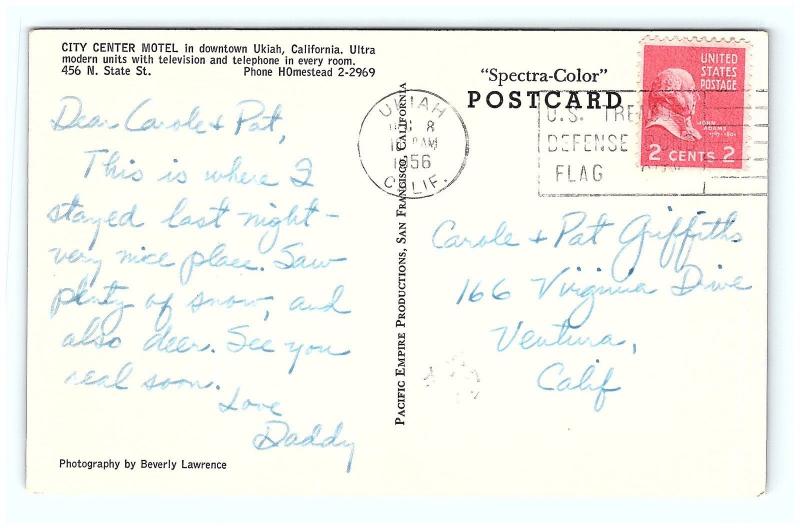 CITY CENTER MOTEL in downtown Ukiah, California. Ultra
modern units with television and telephone in every room.
456 N. State St. Phone HOmestead 2-2969
Dear Carole & Pat,
This is where I
stayed last night -
very nice place. Saw
plenty of snow, and
also deer. See you
real soon.
Love
Daddy
Photography by Beverly Lawrence
PACIFIC EMPIRE PRODUCTIONS, SAN FRANCISCO, CALIFORNIA
"Spectra-Color"
POSTCARD
UKIAH
8
AM
1956
CALIF.
U.S.
DEFENSE
FLAG
UNITED
STATES
POSTAGE
JOHN
ADAMS
2 CENTS 2
Carole & Pat Griffiths
166 Virginia Drive
Ventura,
Calif